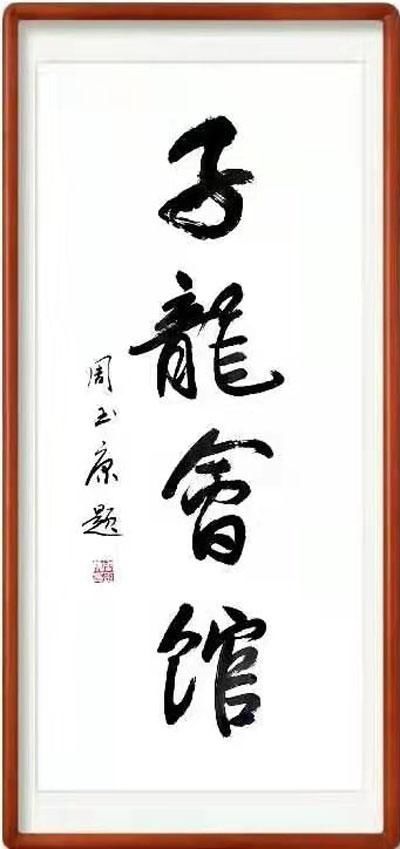 子龍會馆
周玉康題